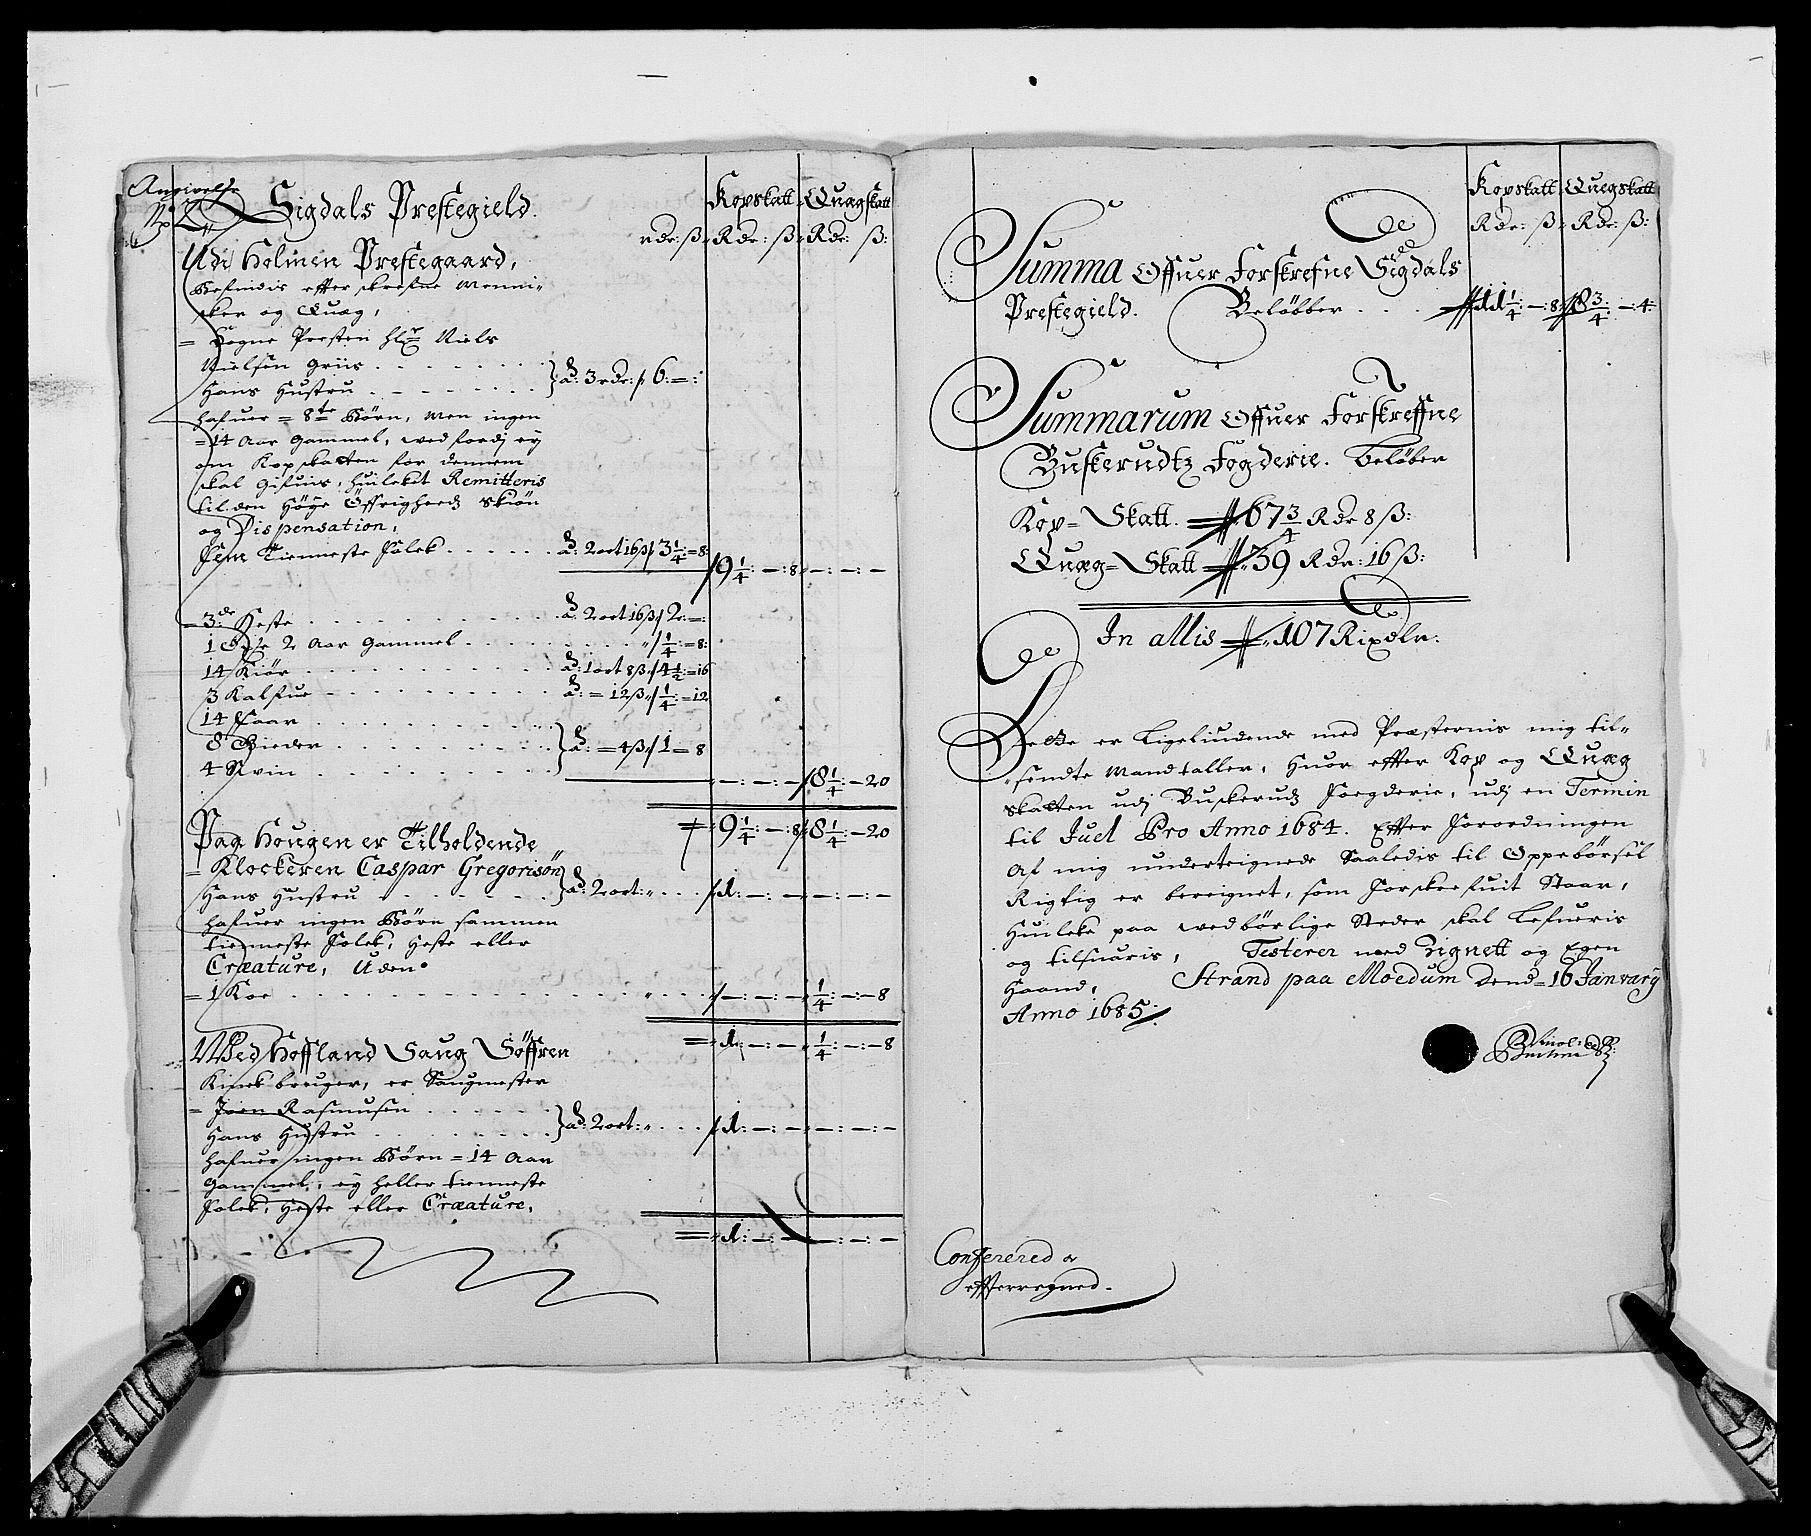 Angivelse
No 2
Sigdals Prestegield.
Kopskatt Quægskatt
rdr: ß Rdr: ß Rdr: ß:
Udi Holmen Prestegaard,
Befindis efter skrefne Menni-
sker og Quæg,
= Sogne Presten hr Niels
Nielsen Griis . . . . . . .
Hans Hustru . . . . . . . } ad: 3 rdr: 6:=:
hafuer = 8te Børn, Men ingen
=14 Aar Gammel, ved fordj ej
om Kopskatten for dennem
skal Gifuis, huilket Remitteris
til den Høye Øffrigheds Skiøn
og Dispensation,
Fem Tienneste Folck . . . . . ad: 2 ort 16 ß 3 1/4:=8:
9 1/4:—:8 —:—:—
=3de Heste . . . . . . . . . ad: 2 ort 16 ß 2:=:
1 2 Aar Gammel . . . . . . . . 1/4:=8:
14 Kiør . . . . . . . . . . ad: 1 ort 8 ß 4 1/2:=16
3 Kalfue . . . . . . . . . ad: = 12 ß 1/4:=12
14 Faar . . . . . . . . . .
8 Gieder . . . . . . . . . } ad: =4 ß 1=8
4 Svin . . . . . . . . . .
—:—:— 8 1/4:—20
= 9 1/4:—:8 8 1/4:—20
Paa Hougen er Tilholdende
= Klockeren Caspar Gregorisøn
Hans Hustru . . . . . . } ad: 2 ort: . . . 1:—:— —:—:—
hafuer ingen Børn sammen
tienneste Folck, Heste eller
Cræature, Uden
= 1 Koe . . . . . . . . . . . . . —:—:— 1/4:—:8
= 1:—:— 1/4:—:8
Ved Hoffland Saug Søffren
bruger, er Saugmester
= Joen Rasmusen . . . . .
Hans Hustru . . . . . . } ad: 2 ort: . . . 1:—:— —:—:—
hafuer ingen Børn = 14 Aar
Gammel, ej heller tienneste
Folck, Heste eller Cræature,
= 1:—:— —:—:—
Kopskatt Quægskatt
Rdr: ß: Rdr: ß:
Summa Offuer Forskrefne Sigdals
Prestegield. Beløbber . . . 11 1/4:—:8 8 3/4:—:4:
Summarum Offuer Forskreffne
Buskerudtz Fogderie. Beløber
Kop= Skatt. 67 3/4 Rdr 8 ß:
Quæg= Skatt 39 Rdr: 16 ß:
In allis 107 Rixdlr:
Dette er Ligeliudende med Præsternis mig til-
sendte Mandtaller, Huor effter Kop og Quæg
skatten udj Buskeruds Foegderie, udj en Termin
til Juel Pro Anno 1684. Efter Forordningen
Af mig underteignede Saaledis til Oppebørsel
Rigtig er beregnet, som Forskrefuit Staar,
Huilcke paa vedbørlige Steder skal Lefueris
og tilsuaris, Testerer med Zignett og Egen
Haand, Strand paa Moedum Dend= 16 Janvary
Anno 1685.
Conferered or
effterregned.